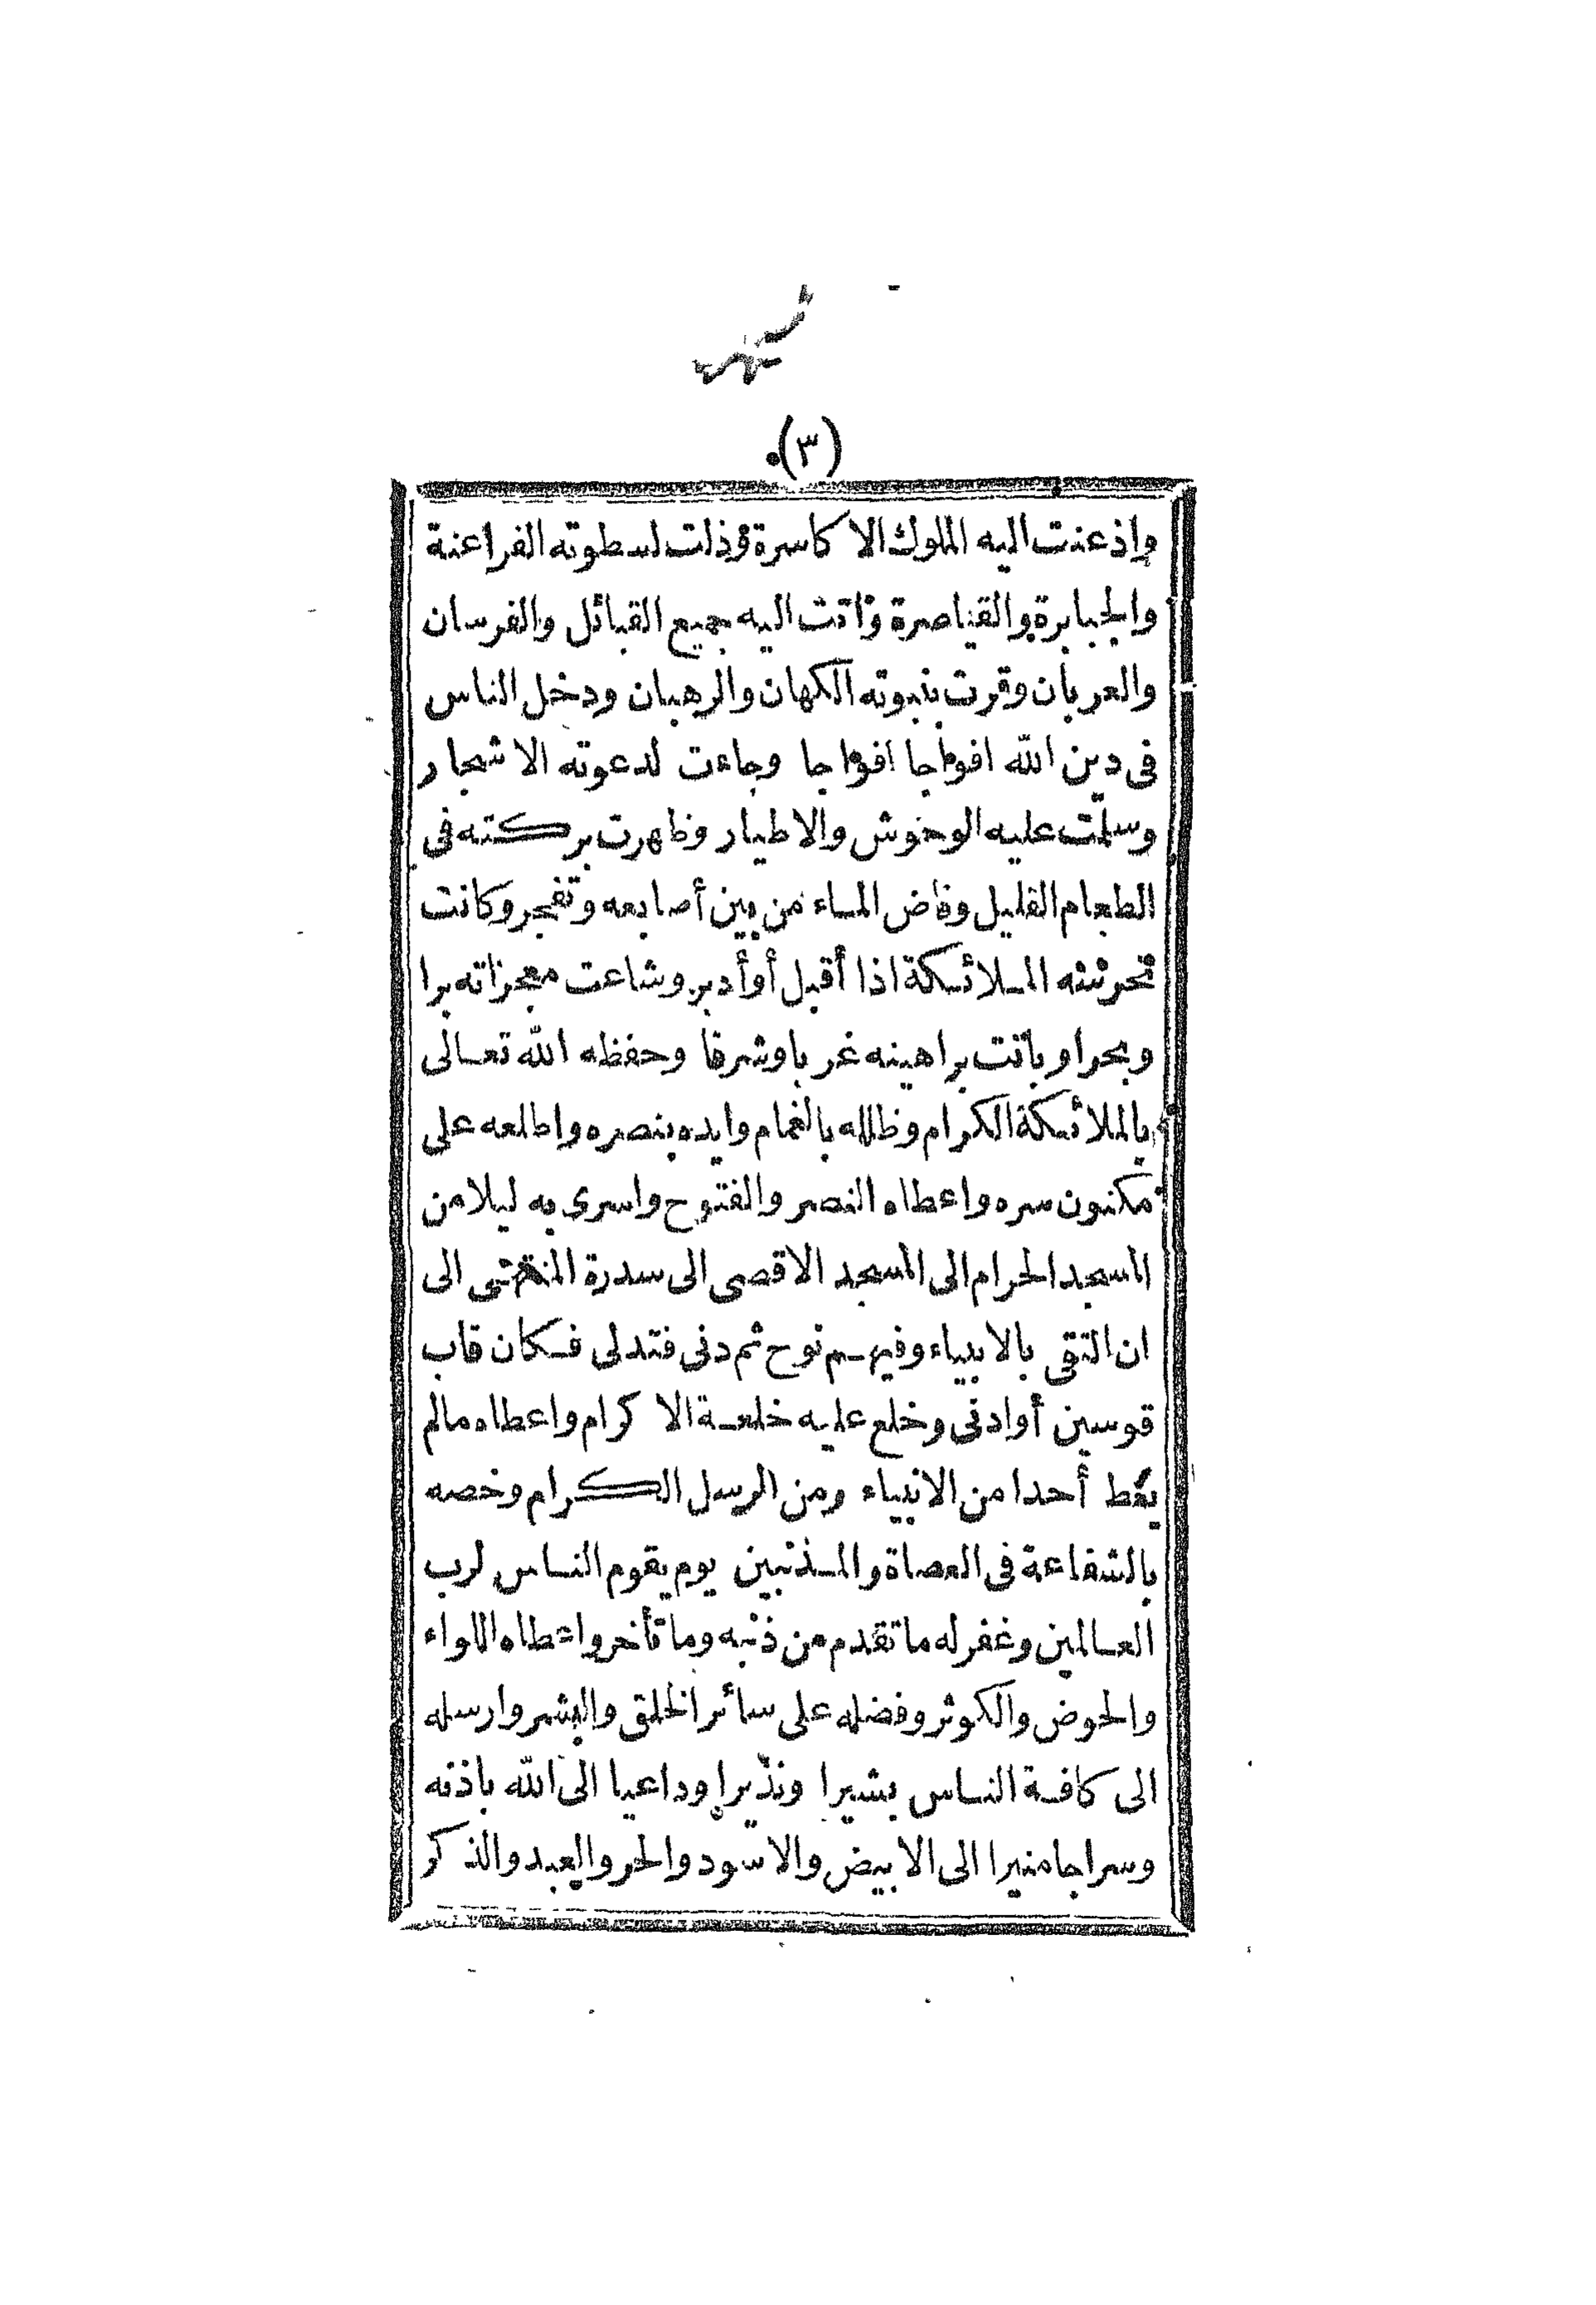 (٣)
واذعنت اليه الملوك الاكاسرة وذلت لسطوته الفراعنة
والجبابرة والقياصرة واتت اليه جميع القبائل والفرسان
والعربان وقرت بنبوته الكهان والرهبان ودخل الناس
فى دين الله افواجا افواجا وجاءت لدعوته الاشجار
وسلمت عليه الوحوش والاطيار وظهرت بركته فى
الطعام القليل وفاض الماء من بين أصابعه وتفجر وكانت
تحرسه الملائكة اذا أقبل أو أدبر وشاعت معجزاته برا
وبحرا وبانت براهينه غربا وشرقا وحفظه الله تعالى
بالملائكة الكرام وظلله بالغمام وايده بنصره واطلعه على
مكنون سره واعطاه النصر والفتوح واسرى به ليلا من
المسجد الحرام الى المسجد الاقصى الى سدرة المنتهى الى
ان التقى بالانبياء وفيهم نوح ثم دنى فتدلى فكان قاب
قوسين أو ادنى وخلع عليه خلعة الاكرام واعطاه مالم
يعط أحدا من الانبياء ومن الرسل الكرام وخصه
بالشفاعة فى العصاة والمذنبين يوم يقوم الناس لرب
العالمين وغفر له ما تقدم من ذنبه وما تأخر واعطاه اللواء
والحوض والكوثر وفضله على سائر الخلق والبشر وارسله
الى كافة الناس بشيرا ونذيرا وداعيا الى الله باذنه
وسراجا منيرا الى الابيض والاسود والحر والعبد والذكر